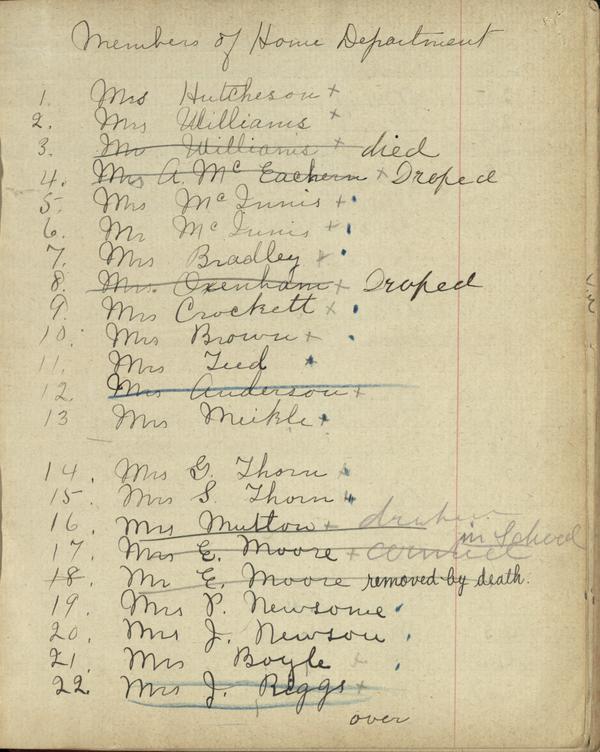 Members of Home Department
1. Mrs Hutcheson +
2. Mrs Williams +
3. Mr Williams + died
4. Mrs A. Mc Eachern + Droped
5. Mrs McInnis +
6. Mr McInnis +
7. Mrs Bradley +
8. Mrs. Oxenham + Droped
9. Mrs Crockett +
10. Mrs Brown +
11. Mrs Teed +
12. Mrs Anderson +
13 Mrs Meikle +
14. Mrs G. Thorn +
15. Mrs S. Thorn +
16. Mrs Mutton +
in School
17. Mrs E. Moore +
18. Mr E. Moore removed by death.
19. Mrs P. Newsome
20. Mrs J. Newson
21. Mrs Boyle +
22. Mrs J. Riggs +
over